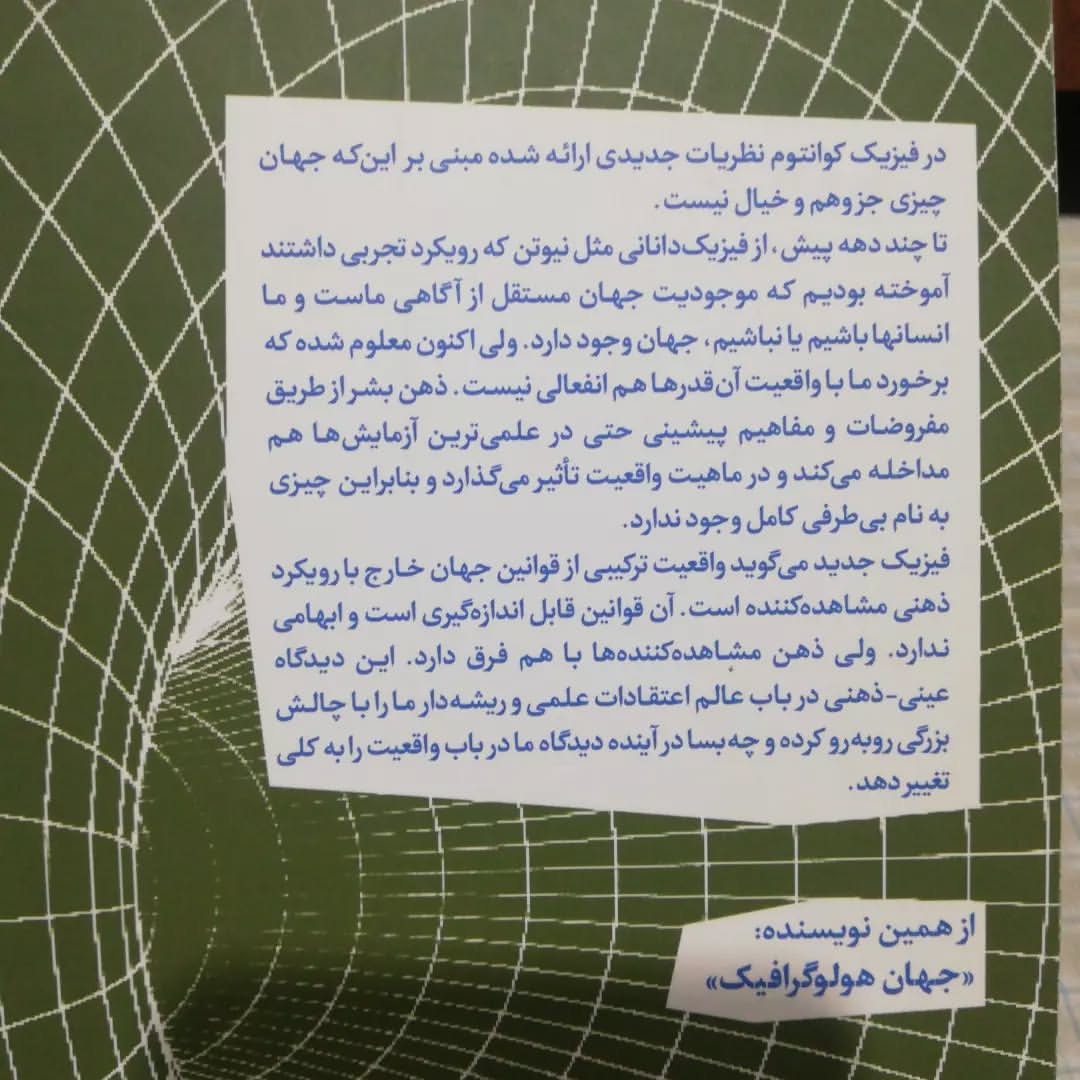 در فیزیک کوانتوم نظریات جدیدی ارائه شده مبنی بر این‌که جهان
چیزی جز وهم و خیال نیست.
تا چند دهه پیش، از فیزیک‌دانانی مثل نیوتن که رویکرد تجربی داشتند
آموخته بودیم که موجودیت جهان مستقل از آگاهی ماست و ما
انسانها باشیم یا نباشیم، جهان وجود دارد. ولی اکنون معلوم شده که
برخورد ما با واقعیت آن‌قدرها هم انفعالی نیست. ذهن بشر از طریق
مفروضات و مفاهیم پیشینی حتی در علمی‌ترین آزمایش‌ها هم
مداخله می‌کند و در ماهیت واقعیت تأثیر می‌گذارد و بنابراین چیزی
به نام بی‌طرفی کامل وجود ندارد.
فیزیک جدید می‌گوید واقعیت ترکیبی از قوانین جهان خارج با رویکرد
ذهنی مشاهده‌کننده است. آن قوانین قابل اندازه‌گیری است و ابهامی
ندارد. ولی ذهن مشاهده‌کننده‌ها با هم فرق دارد. این دیدگاه
عینی-ذهنی در باب عالم اعتقادات علمی و ریشه‌دار ما را با چالش
بزرگی روبه‌رو کرده و چه‌بسا در آینده دیدگاه ما در باب واقعیت را به کلی
تغییر دهد.
از همین نویسنده:
«جهان هولوگرافیک»